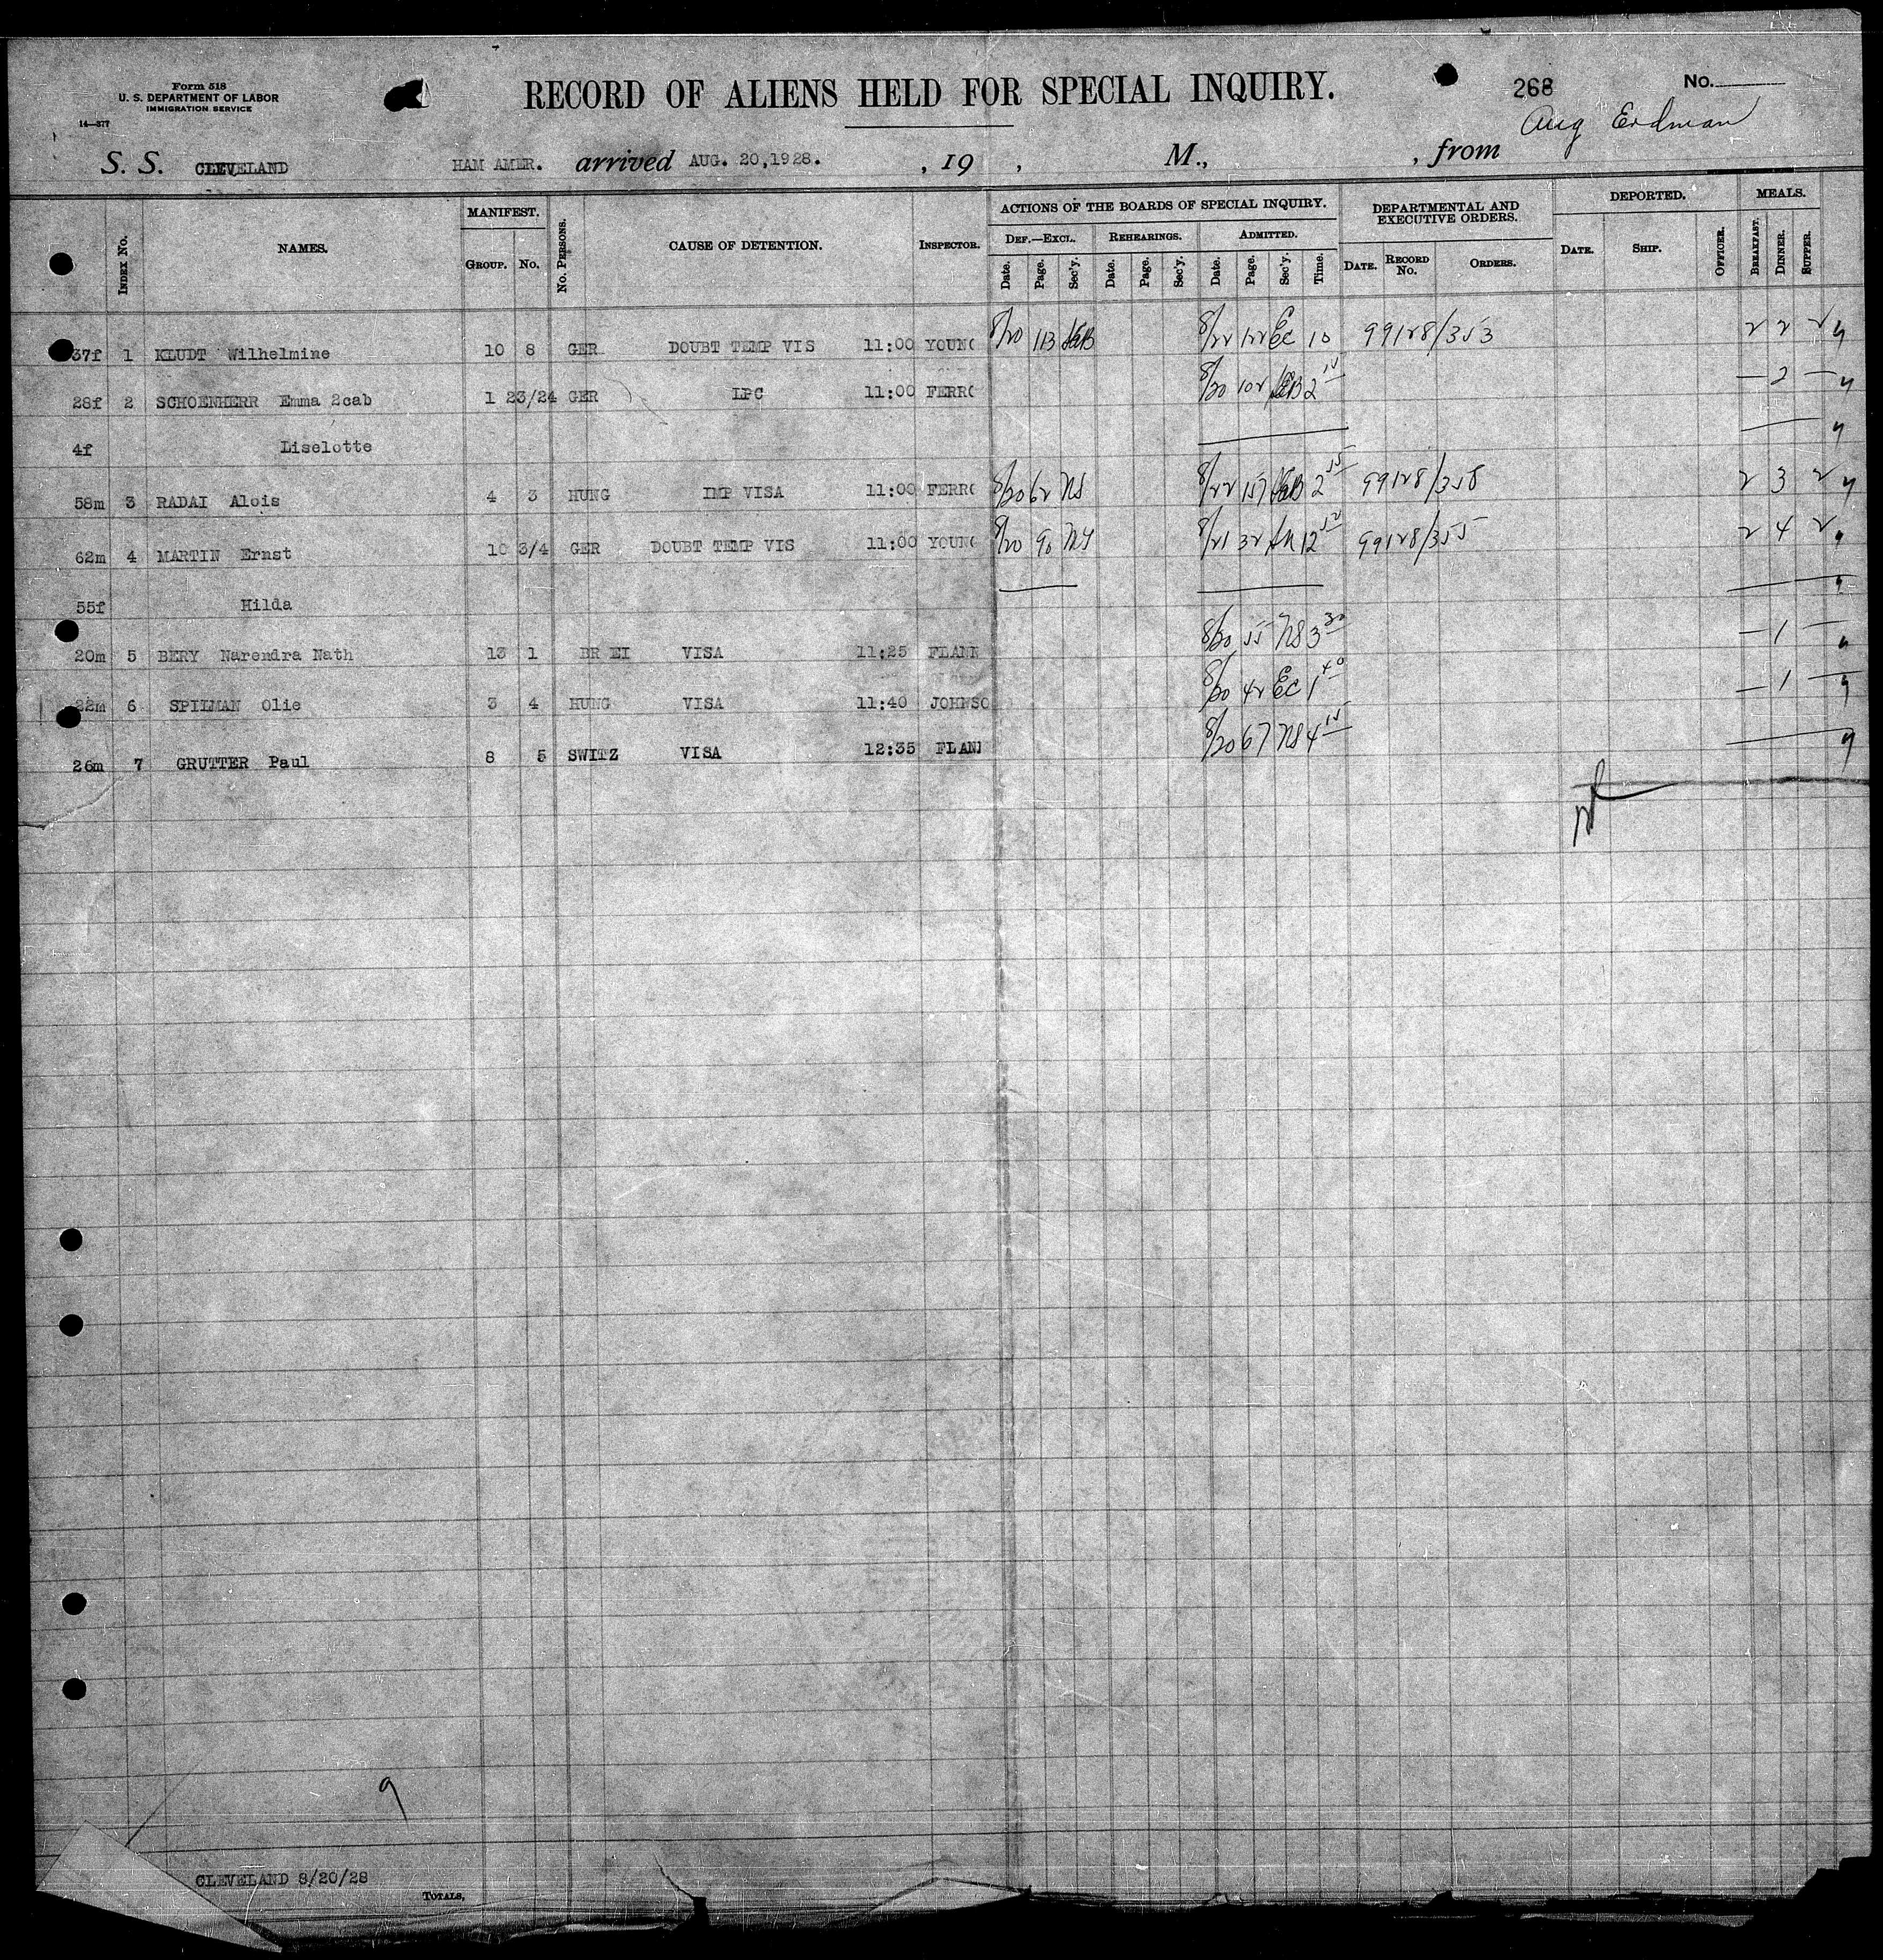 Form 518
U. S. DEPARTMENT OF LABOR
IMMIGRATION SERVICE
14—377
RECORD OF ALIENS HELD FOR SPECIAL INQUIRY.
268
No.
Aug Erdman
S. S. CLEVELAND HAM AMER. arrived AUG. 20,1928. , 19 , M., , from
INDEX No. NAMES. MANIFEST. GROUP. No. No. PERSONS. CAUSE OF DETENTION. INSPECTOR. ACTIONS OF THE BOARDS OF SPECIAL INQUIRY. DEF.—EXCL. Date. Page. Sec'y. REHEARINGS. Date. Page. Sec'y. ADMITTED. Date. Page. Sec'y. Time. DEPARTMENTAL AND EXECUTIVE ORDERS. DATE. RECORD No. ORDERS. DEPORTED. DATE. SHIP. OFFICER. MEALS. BREAKFAST. DINNER. SUPPER.
37f 1 KLUDT Wilhelmine 10 8 GER DOUBT TEMP VIS 11:00 YOUNG 8/20 113 8/22 122 EC 10 99128/353 2 2 2
28f 2 SCHOENHERR Emma 2cab 1 23/24 GER LPC 11:00 FERRO 8/20 102 2 15 — 2 —
4f Liselotte
58m 3 RADAI Alois 4 3 HUNG IMP VISA 11:00 FERRO 8/20 62 NS 8/22 157 2 55 99128/358 2 3 2
62m 4 MARTIN Ernst 10 3/4 GER DOUBT TEMP VIS 11:00 YOUNG 8/20 90 8/21 32 12 50 99128/355 2 4 2
55f Hilda
20m 5 BERY Narendra Nath 13 1 BR EI VISA 11:25 FLANN 8/20 55 NS 3 30 — 1 —
22m 6 SPILMAN Olie 3 4 HUNG VISA 11:40 JOHNSO 8/20 42 EC 1 40 — 1 —
26m 7 GRUTTER Paul 8 5 SWITZ VISA 12:35 FLANN 8/20 67 NS 4 15
9
CLEVELAND 8/20/28
TOTALS,